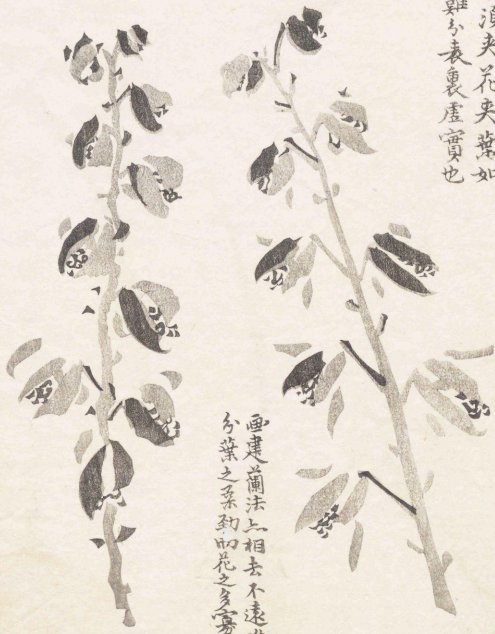 湏夾花夾葉如
難分表裏虛實也
画建蘭法亦相去不遠
分葉之柔勁花之多寡